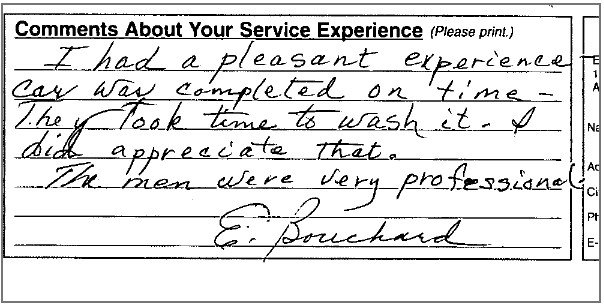 Comments About Your Service Experience (Please print.)
I had a pleasant experience
car was completed on time -
They Took time to wash it. I
did appreciate that.
The men were very professional.
E. Bouchard
E
1
A
Na
Ad
Ci
Ph
E-